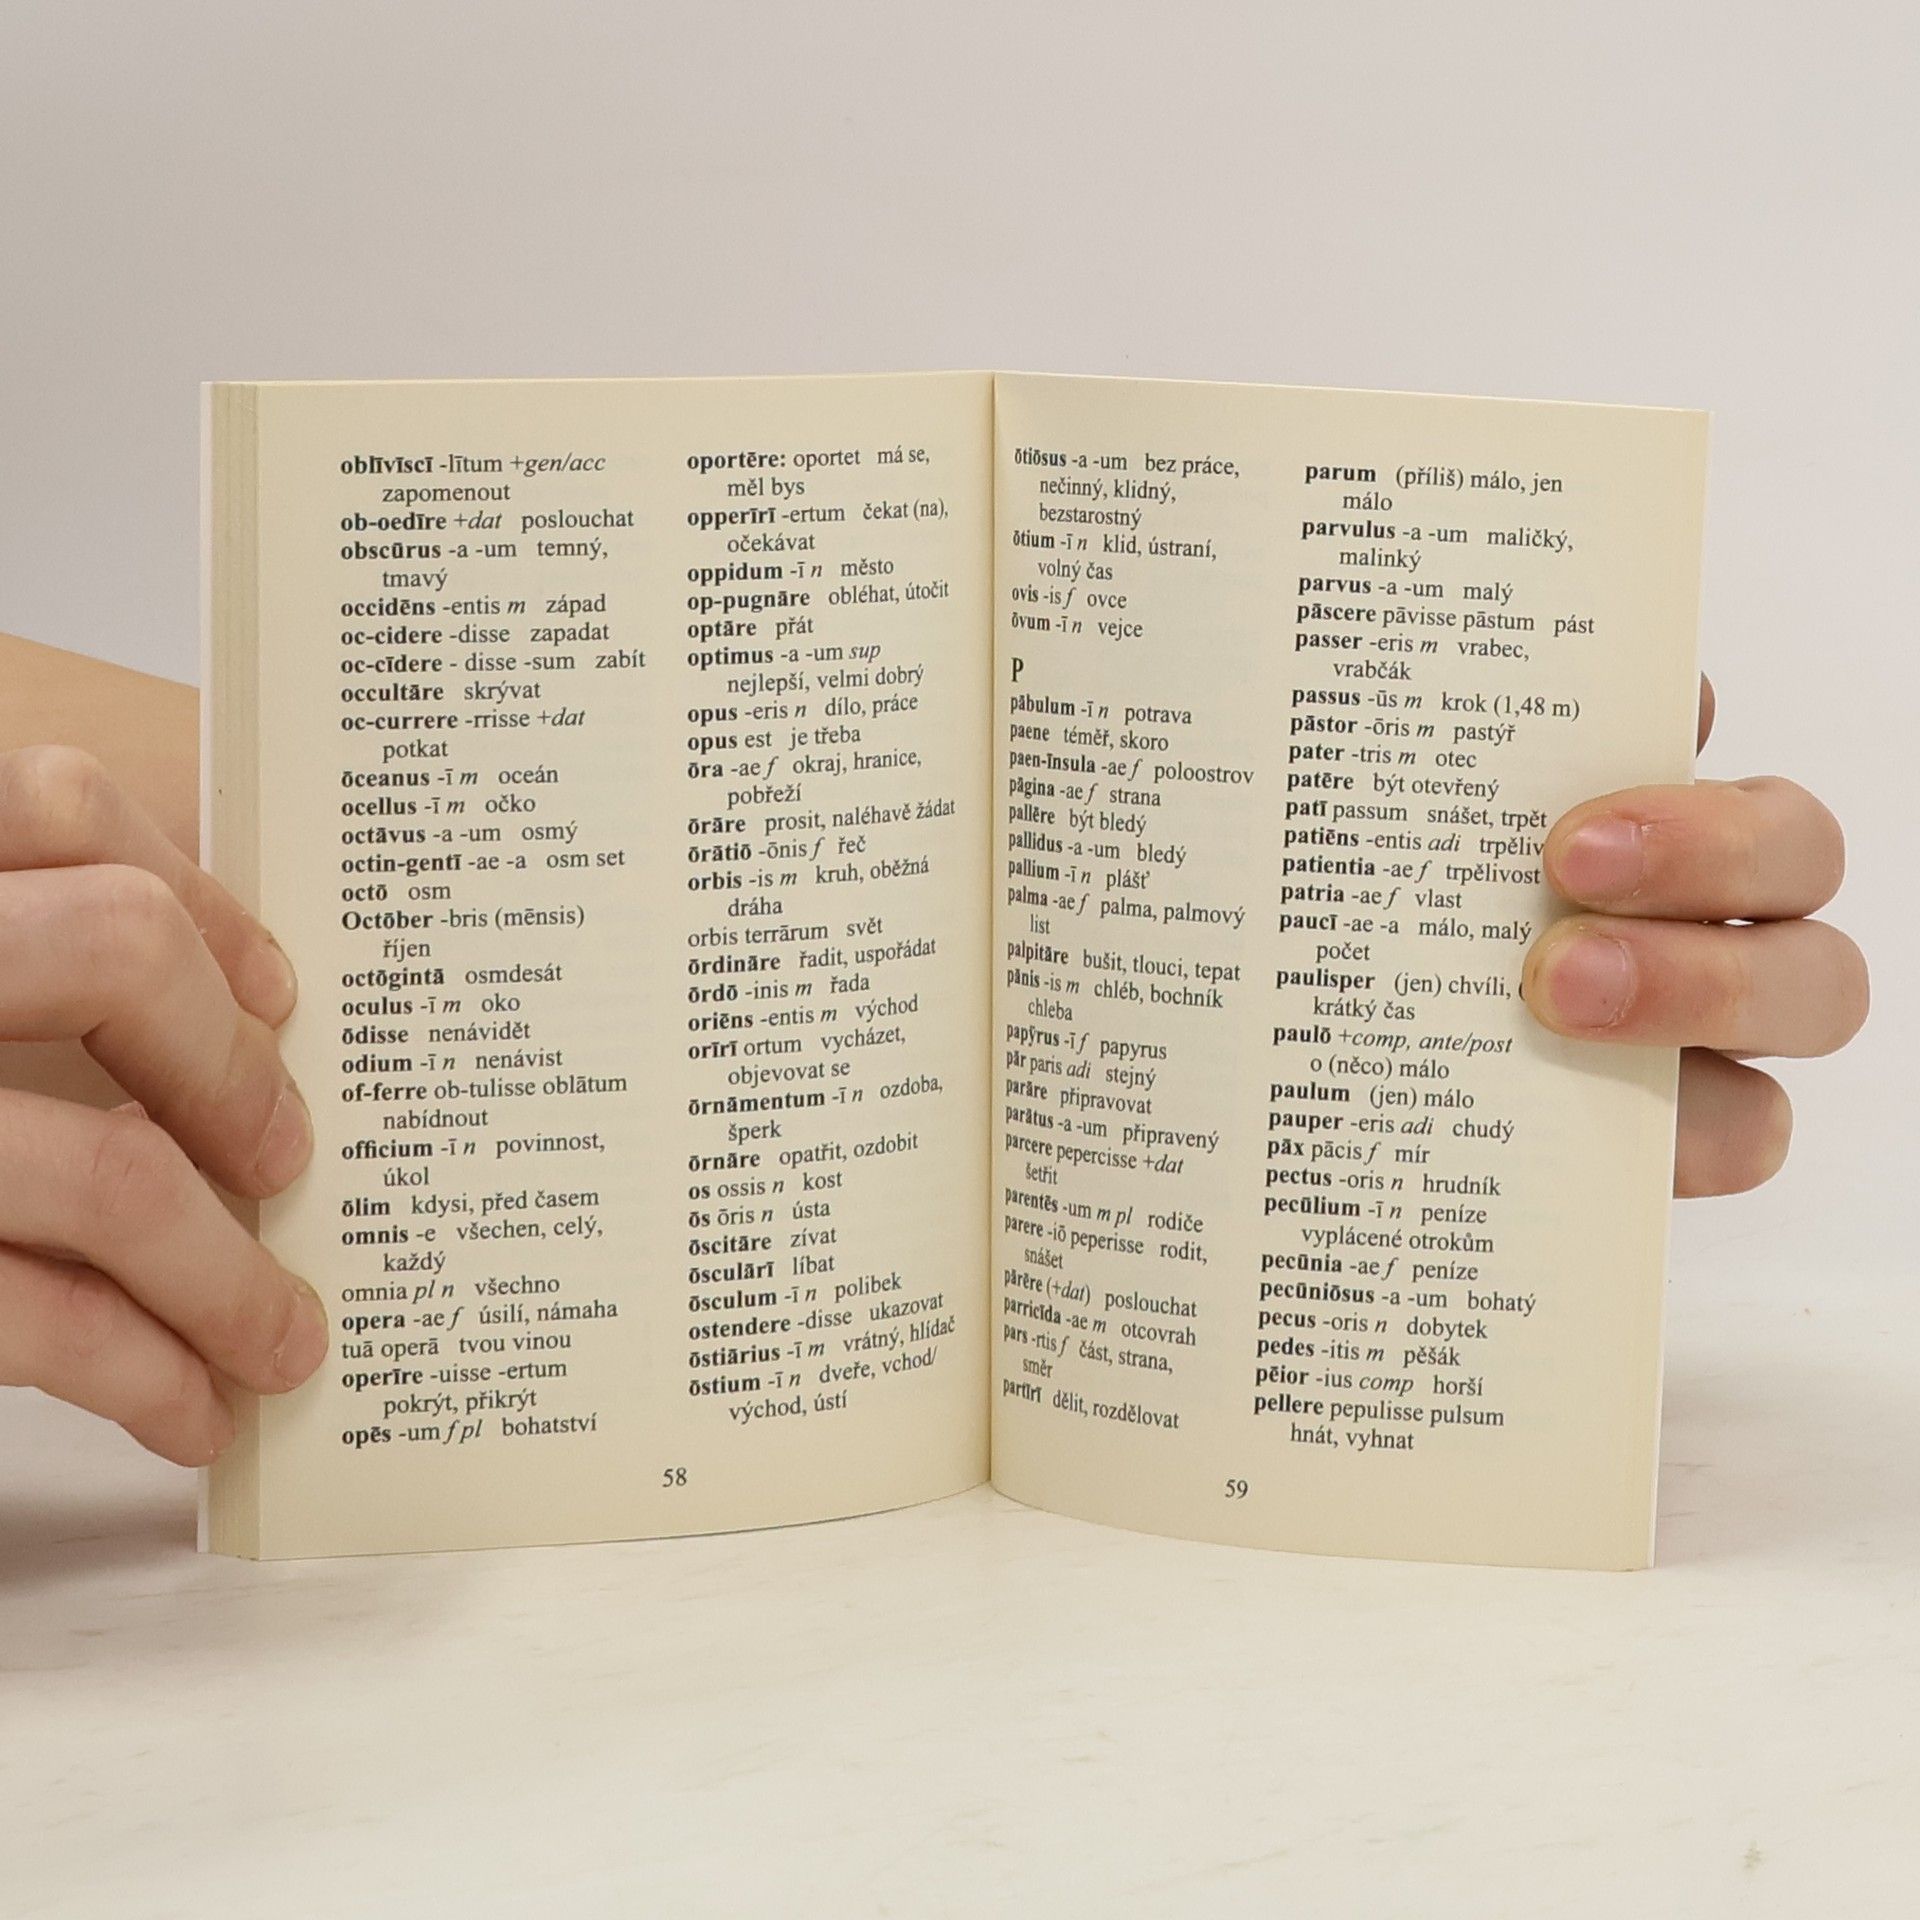 oblīvīscī -lītum +gen/acc
zapomenout
ob-oedīre +dat poslouchat
obscūrus -a -um temný,
tmavý
occidēns -entis m západ
oc-cidere -disse zapadat
oc-cīdere - disse -sum zabít
occultāre skrývat
oc-currere -rrisse +dat
potkat
ōceanus -ī m oceán
ocellus -ī m očko
octāvus -a -um osmý
octin-gentī -ae -a osm set
octō osm
Octōber -bris (mēnsis)
říjen
octōgintā osmdesát
oculus -ī m oko
ōdisse nenávidět
odium -ī n nenávist
of-ferre ob-tulisse oblātum
nabídnout
officium -ī n povinnost,
úkol
ōlim kdysi, před časem
omnis -e všechen, celý,
každý
omnia pl n všechno
opera -ae f úsilí, námaha
tuā operā tvou vinou
operīre -uisse -ertum
pokrýt, přikrýt
opēs -um f pl bohatství
oportēre: oportet má se,
měl bys
opperīrī -ertum čekat (na),
očekávat
oppidum -ī n město
op-pugnāre obléhat, útočit
optāre přát
optimus -a -um sup
nejlepší, velmi dobrý
opus -eris n dílo, práce
opus est je třeba
ōra -ae f okraj, hranice,
pobřeží
ōrāre prosit, naléhavě žádat
ōrātiō -ōnis f řeč
orbis -is m kruh, oběžná
dráha
orbis terrārum svět
ōrdināre řadit, uspořádat
ōrdō -inis m řada
oriēns -entis m východ
orīrī ortum vycházet,
objevovat se
ōrnāmentum -ī n ozdoba,
šperk
ōrnāre opatřit, ozdobit
os ossis n kost
ōs ōris n ústa
ōscitāre zívat
ōsculārī líbat
ōsculum -ī n polibek
ostendere -disse ukazovat
ōstiārius -ī m vrátný, hlídač
ōstium -ī n dveře, vchod/
východ, ústí
58
ōtiōsus -a -um bez práce,
nečinný, klidný,
bezstarostný
ōtium -ī n klid, ústraní,
volný čas
ovis -is f ovce
ōvum -ī n vejce
P
pābulum -ī n potrava
paene téměř, skoro
paen-īnsula -ae f poloostrov
pāgina -ae f strana
pallēre být bledý
pallidus -a -um bledý
pallium -ī n plášť
palma -ae f palma, palmový
list
palpitāre bušit, tlouci, tepat
pānis -is m chléb, bochník
chleba
papȳrus -ī f papyrus
pār paris adi stejný
parāre připravovat
parātus -a -um připravený
parcere pepercisse +dat
šetřit
parentēs -um m pl rodiče
parere -iō peperisse rodit,
snášet
pārēre (+dat) poslouchat
parricīda -ae m otcovrah
pars -rtis f část, strana,
směr
partīrī dělit, rozdělovat
parum (příliš) málo, jen
málo
parvulus -a -um maličký,
malinký
parvus -a -um malý
pāscere pāvisse pāstum pást
passer -eris m vrabec,
vrabčák
passus -ūs m krok (1,48 m)
pāstor -ōris m pastýř
pater -tris m otec
patēre být otevřený
patī passum snášet, trpět
patiēns -entis adi trpěliv
patientia -ae f trpělivost
patria -ae f vlast
paucī -ae -a málo, malý
počet
paulisper (jen) chvíli,
krátký čas
paulō +comp, ante/post
o (něco) málo
paulum (jen) málo
pauper -eris adi chudý
pāx pācis f mír
pectus -oris n hrudník
pecūlium -ī n peníze
vyplácené otrokům
pecūnia -ae f peníze
pecūniōsus -a -um bohatý
pecus -oris n dobytek
pedes -itis m pěšák
pēior -ius comp horší
pellere pepulisse pulsum
hnát, vyhnat
59